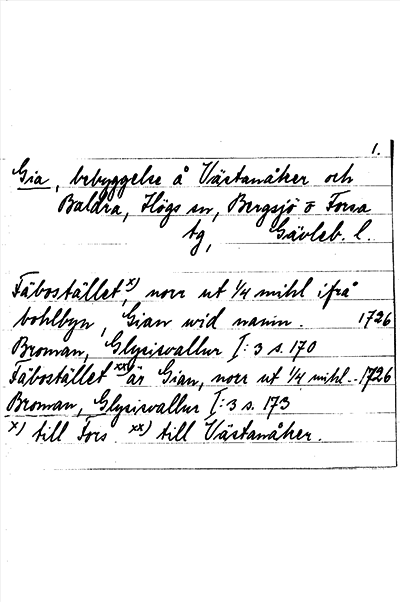 1.
Gia, bebyggelse å Västanåker och
Baldra, Högs sn, Bergsjö o Forsa
tg, Gävleb. l.
Fäbostället x), norr ut 1/4 mihl ifrå
bohlbyn, Gian wid namn. 1726
Broman, Glysisvallur I:3 s. 170
Fäbostället xx) är Gian, norr ut 1/4 mihl.. 1726
Broman, Glysisvallur I:3 s. 173
x) till Fors xx) till Västanåker.